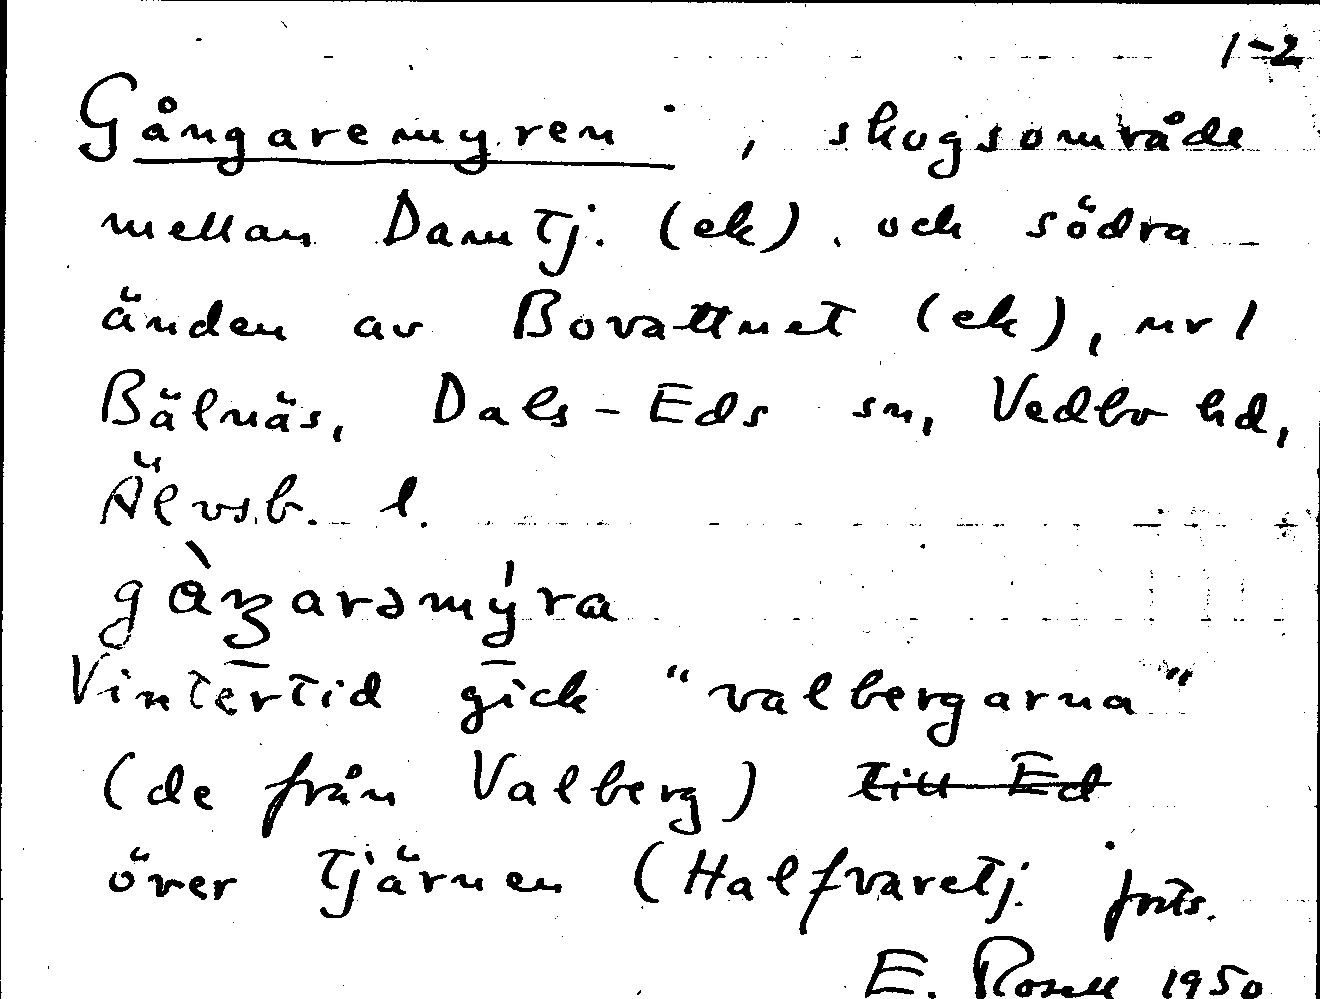 1-2
Gångaremyren, skogsområde
mellan Damtj. (ek). och södra
änden av Bovattnet (ek), nr 1
Bälnäs, Dals-Eds sn, Vedbo hd,
Älvsb. l.
Vintertid gick "valbergarna"
(de från Valberg) till Ed
över tjärnen (Halfvaretj. forts.
E. Rosell 1950